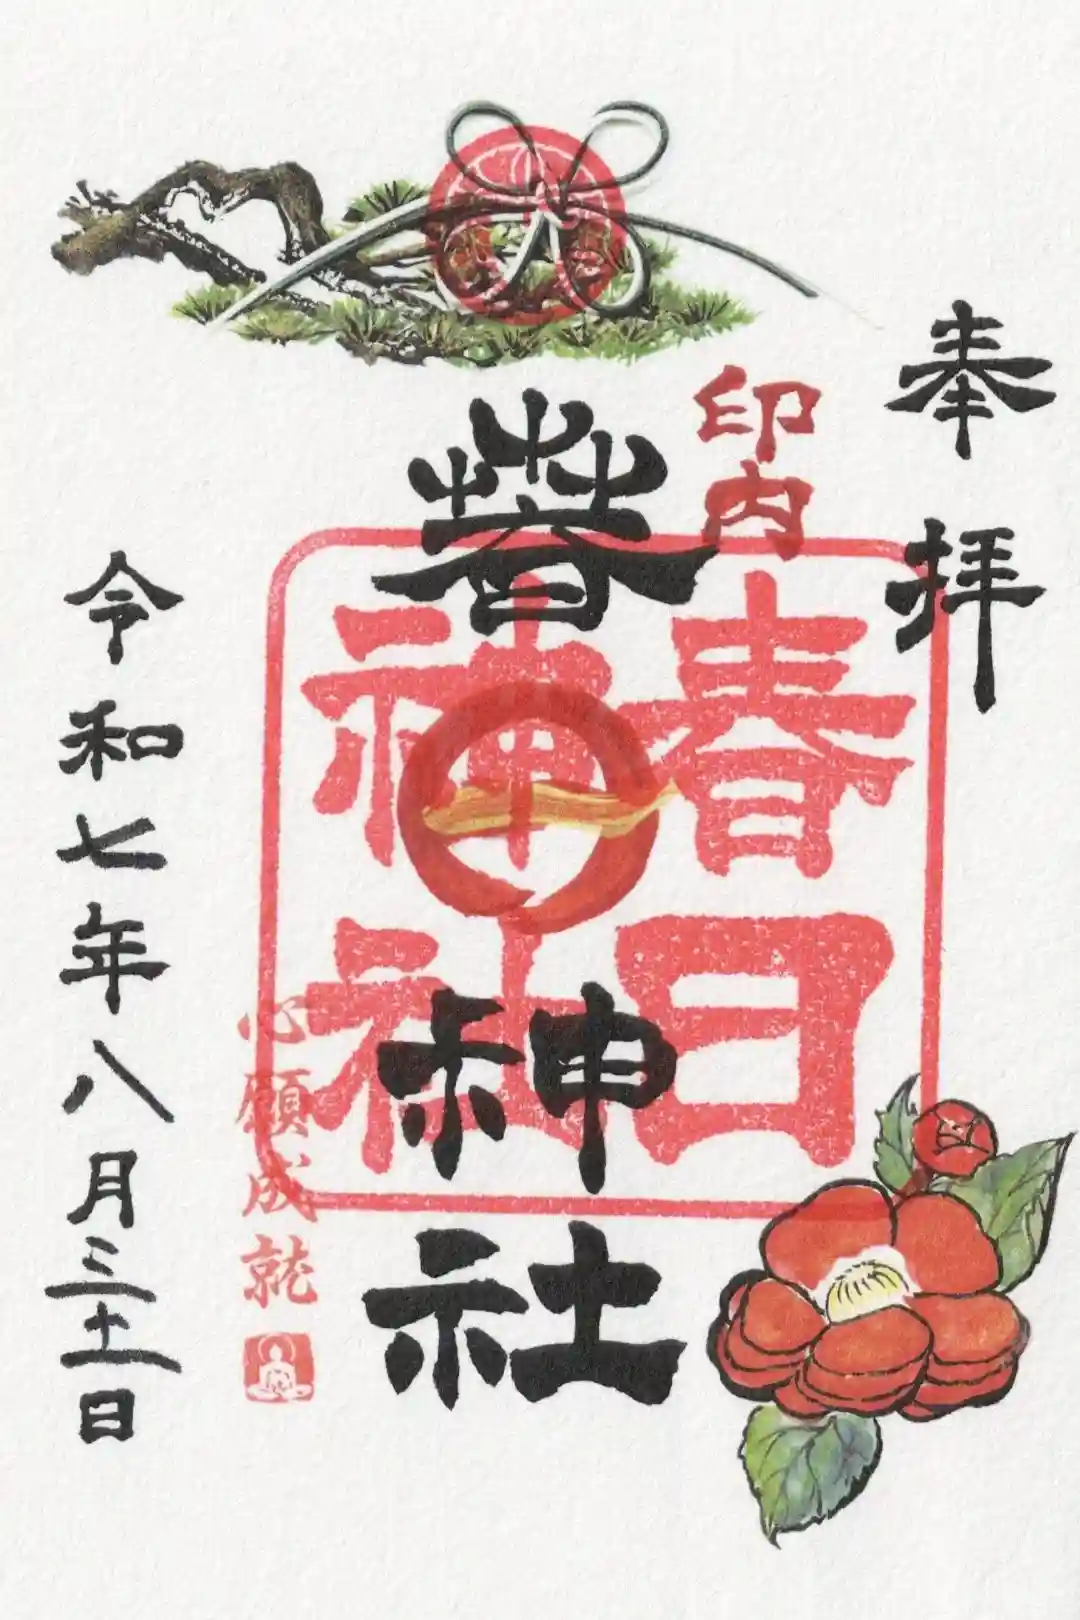 奉拝
印内
春日神社
春日神社
心願成就
令和七年八月三十一日